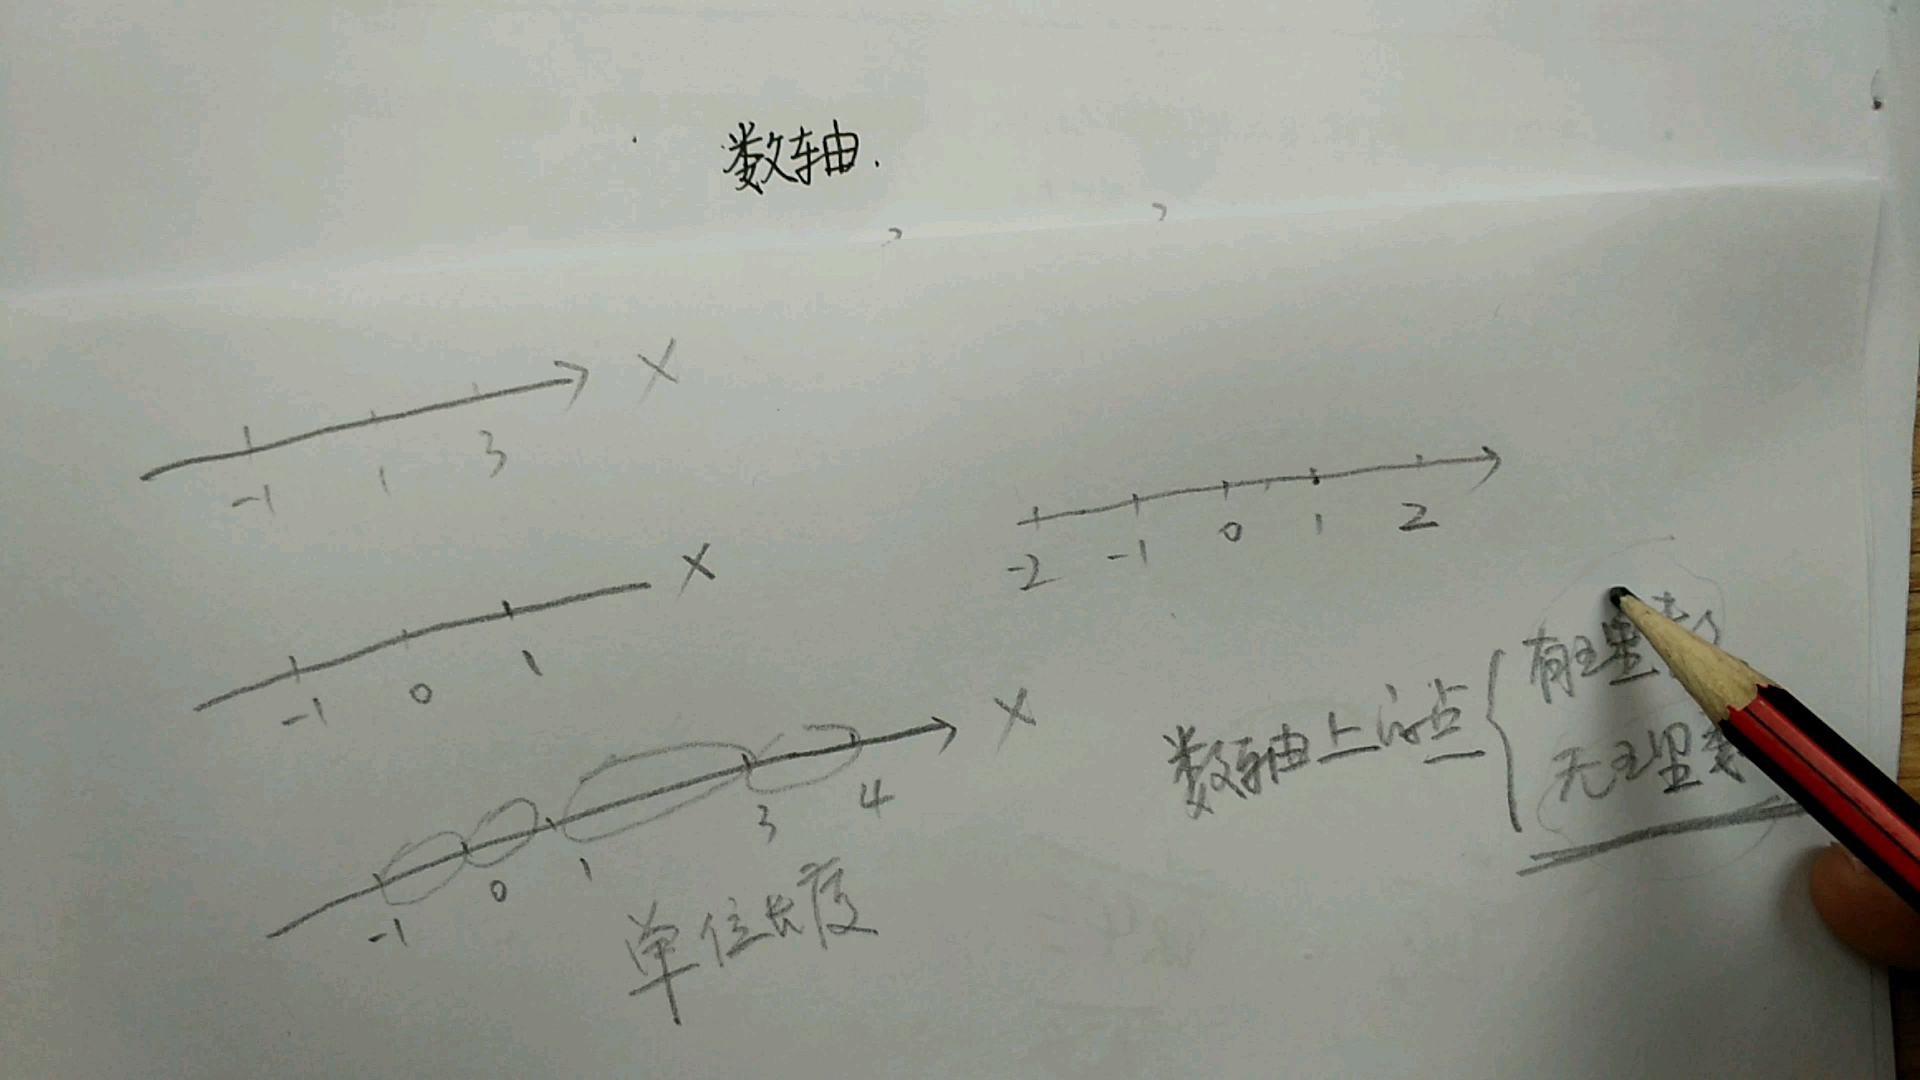 数轴.
-1 1 3 X
-2 -1 0 1 2
-1 0 1 X
-1 0 1 3 4 X
单位长度
数轴上的点
有理
无理数